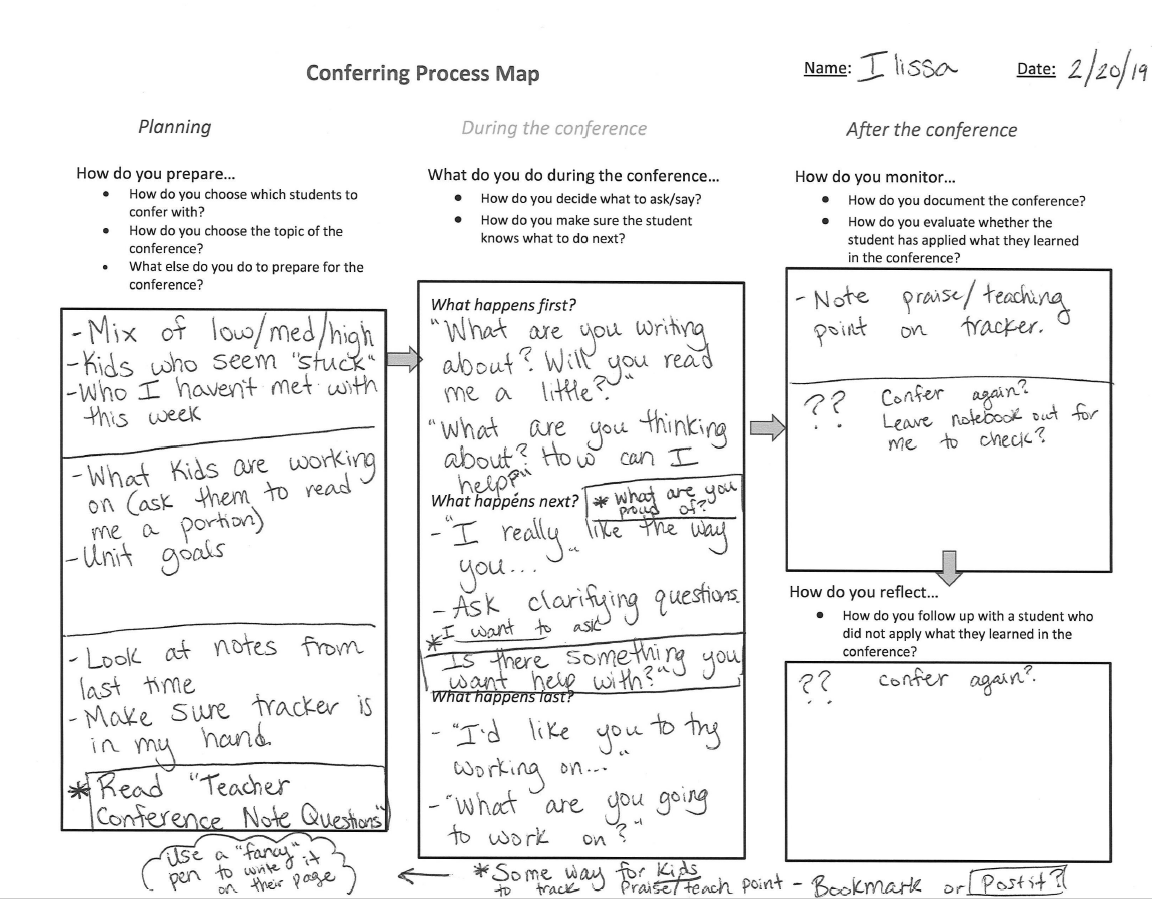 Conferring Process Map
Name: Ilissa
Date: 2/20/19
Planning
How do you prepare...
• How do you choose which students to
confer with?
• How do you choose the topic of the
conference?
• What else do you do to prepare for the
conference?
- Mix of low/med/high
- Kids who seem "stuck"
- Who I haven't met with
this week
- What kids are working
on (ask them to read
me a portion)
- Unit goals
- Look at notes from
last time
- Make sure tracker is
in my hand.
* Read "Teacher
Conference Note Questions"
During the conference
What do you do during the conference...
• How do you decide what to ask/say?
• How do you make sure the student
knows what to do next?
What happens first?
"What are you writing
about? Will you read
me a little?"
"What are you thinking
about? How can I
help?"
What happens next?
* What are you
proud of?
- "I really like the way
you..."
- Ask clarifying questions.
* I want to ask
Is there something you
want help with?"
What happens last?
- "I'd like you to try
working on..."
- "What are you going
to work on?"
After the conference
How do you monitor...
• How do you document the conference?
• How do you evaluate whether the
student has applied what they learned
in the conference?
- Note praise/teaching
point on tracker.
?? Confer again?
Leave notebook out for
me to check?
How do you reflect...
• How do you follow up with a student who
did not apply what they learned in the
conference?
?? confer again?
* Some way for kids
to track Praise/teach point - Bookmark or Postit?
Use a "fancy"
pen to write it
on their page